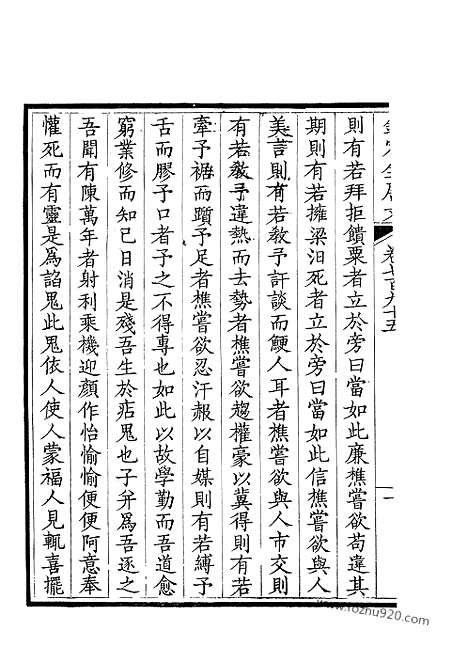 則有若拜拒饋粟者立於旁曰當如此廉樵嘗欲苟違其
期則有若擁梁汨死者立於旁曰當如此信樵嘗欲與人
美言則有若教予訐談而鯁人耳者樵嘗欲與人市交則
有若教予違熱而去勢者樵嘗欲趨權豪以冀得則有若
牽予裾而躓予足者樵嘗欲忍汗赧以自媒則有若縛予
舌而膠予口者予之不得專也如此以故學勤而吾道愈
窮業修而知己日消是殘吾生於店鬼也子弁為吾逐之
吾聞有陳萬年者射利乘機迎顏作怡愉愉便便阿意奉
懽死而有靈是為諂鬼此鬼依人使人蒙福人見輒喜擺
卷七百九十五
一
www.rozhu920.com